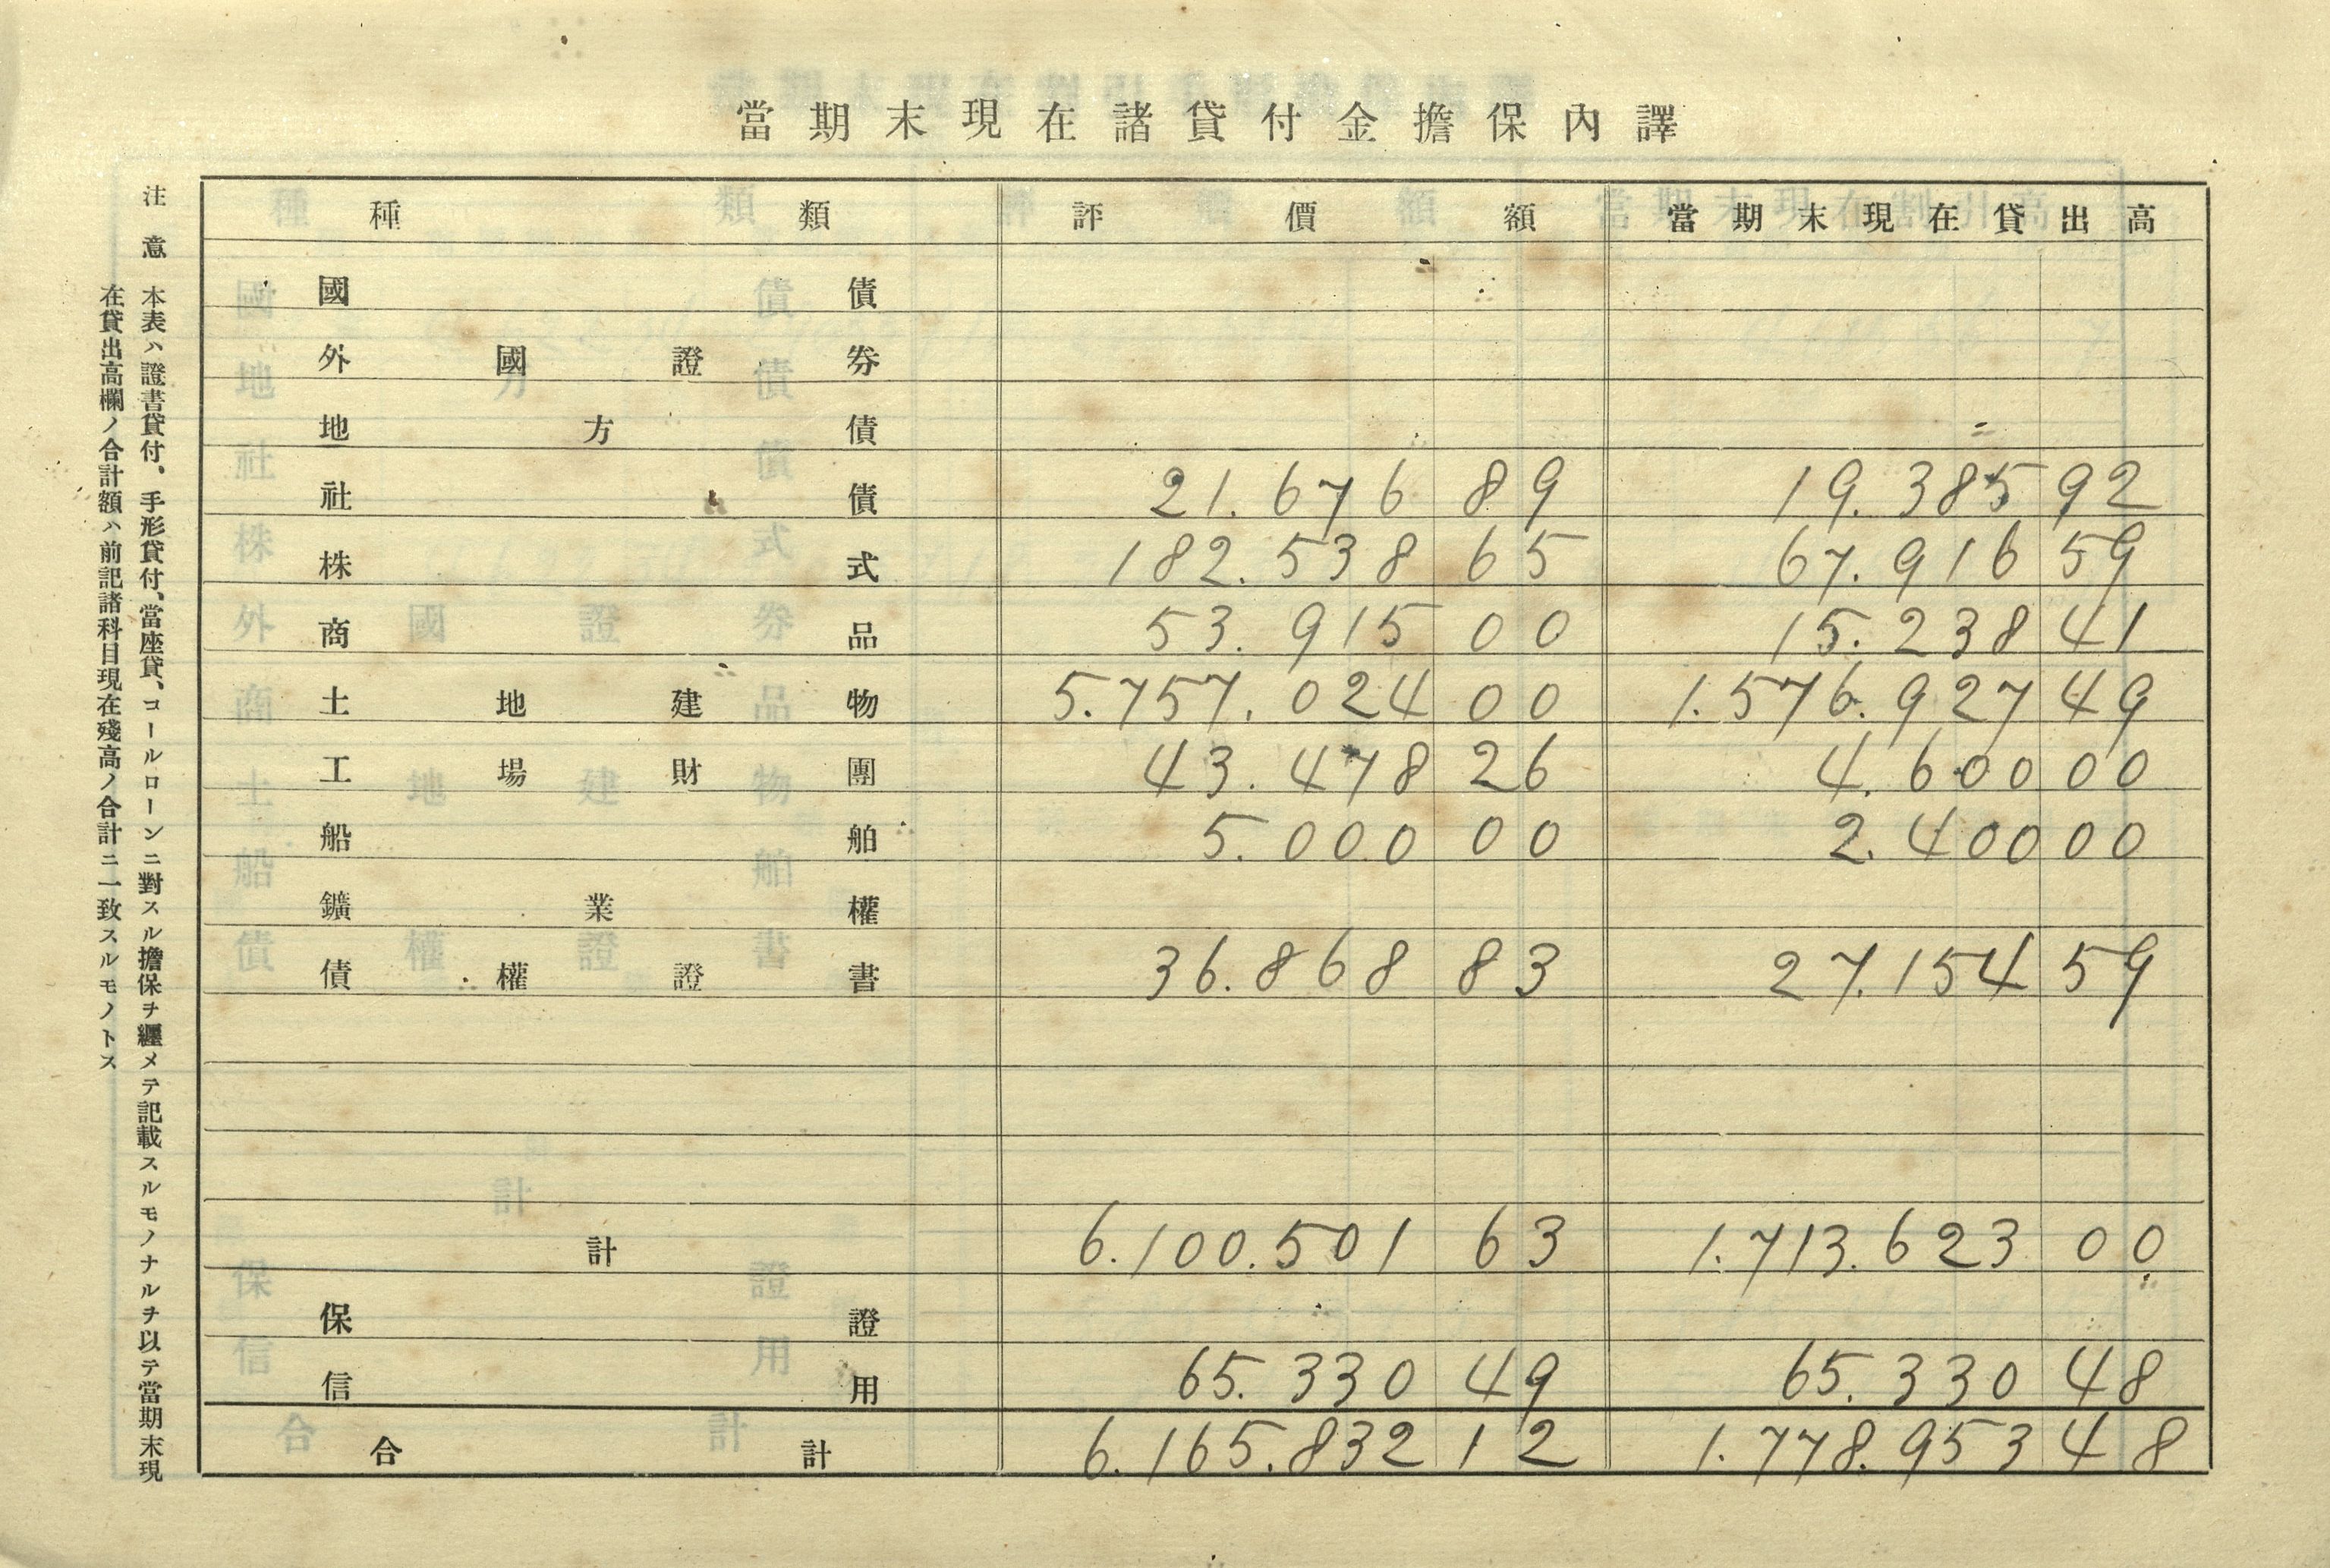 當期末現在諸貸付金擔保內譯
種類 評價額 當期末現在貸出高
國債
外國證券
地方債
社債 21.676 89 19.385 92
株式 182.538 65 67.916 59
商品 53.915 00 15.238 41
土地建物 5.757.024 00 1.576.927 49
工場財團 43.478 26 4.600 00
船舶 5.000 00 2.400 00
鑛業權
債權證書 36.868 83 27.154 59
計 6.100.501 63 1.713.623 00
保證
信用 65.330 49 65.330 48
合計 6.165.832 12 1.778.953 48
注意 本表ハ證書貸付、手形貸付、當座貸、コールローンニ對スル擔保ヲ纒メテ記載スルモノナルヲ以テ當期末現
在貸出高欄ノ合計額ハ前記諸科目現在殘高ノ合計ニ一致スルモノトス